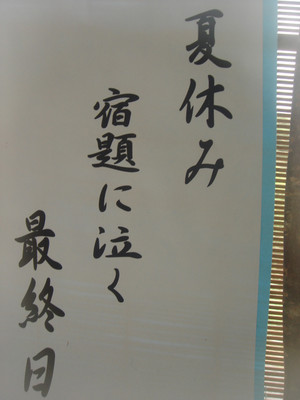 夏休み
宿題に泣く
最終日